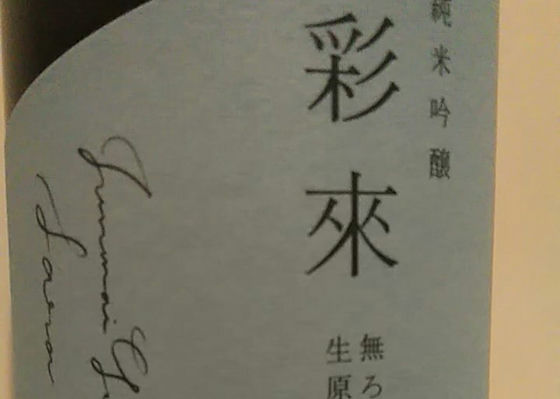 純米吟醸
彩來
無ろ
生原
Junmai Gi
Saera